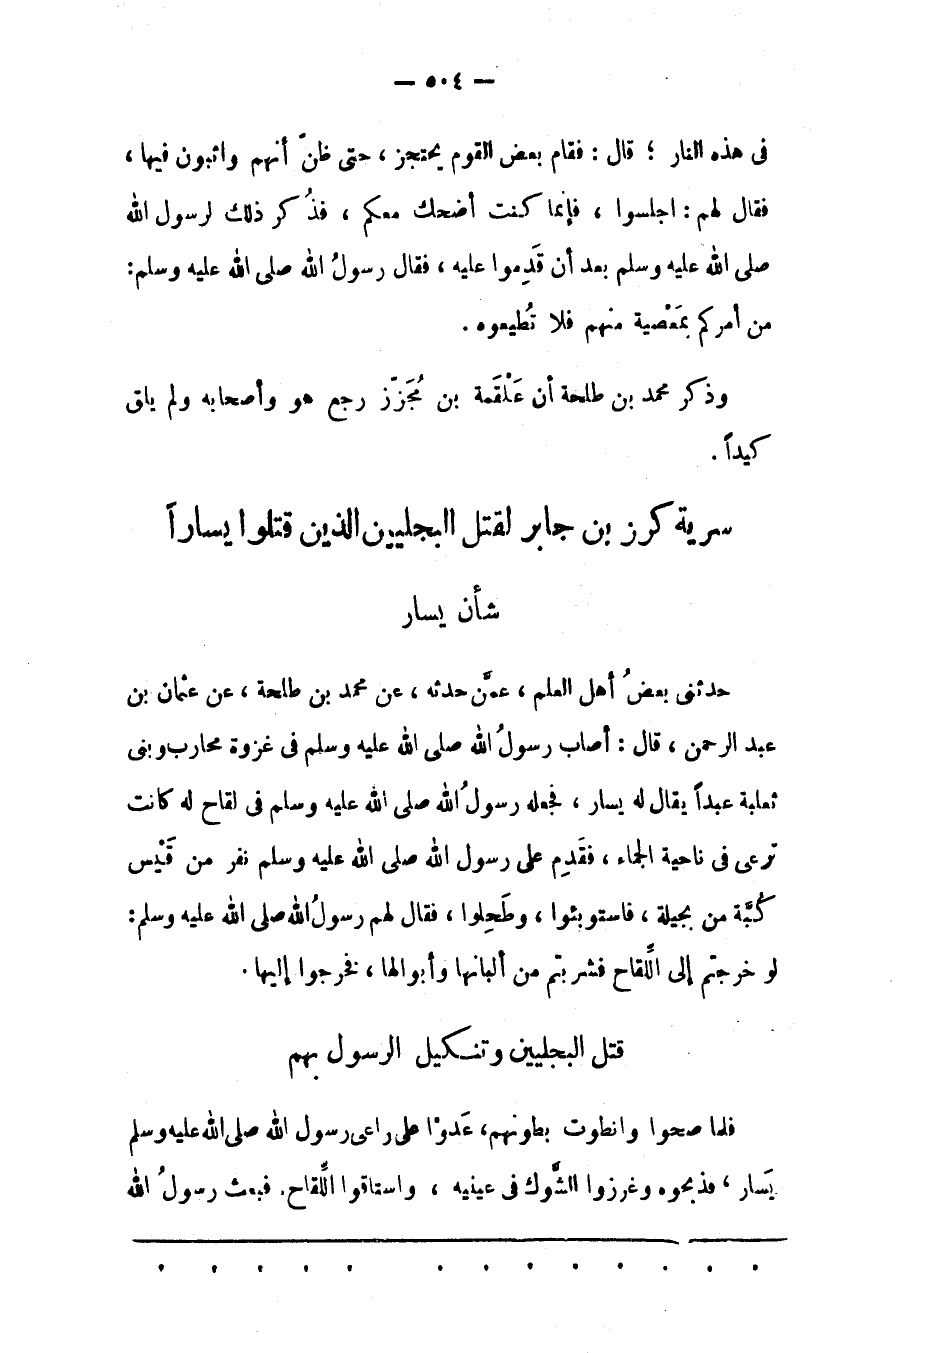 — ٥٠٤ —
فى هذه النار ؛ قال : فقام بعض القوم يحتجز ، حتى ظنّ أنهم واثبون فيها ،
فقال لهم : اجلسوا ، فإنما كنت أضحك معكم ، فذُكر ذلك لرسول الله
صلى الله عليه وسلم بعد أن قَدِموا عليه ، فقال رسولُ الله صلى الله عليه وسلم :
من أمركم بمَعْصية منهم فلا تُطيعوه .
وذكر محمد بن طلحة أن عَلْقَمة بن مُجَزّز رجع هو وأصحابه ولم يلق
كيداً .
سرية كرز بن جابر لقتل البجليين الذين قتلوا يساراً
شأن يسار
حدثنى بعضُ أهل العلم ، عمَّن حدثه ، عن محمد بن طلحة ، عن عثمان بن
عبد الرحمن ، قال : أصاب رسولُ الله صلى الله عليه وسلم فى غزوة محارب وبنى
ثعلبة عبداً يقال له يسار ، فجعله رسولُ الله صلى الله عليه وسلم فى لقاح له كانت
ترعى فى ناحية الجماء ، فقَدِم على رسول الله صلى الله عليه وسلم نفر من قَيْس
كُبَّة من بجيلة ، فاستوبئوا ، وطَحِلوا ، فقال لهم رسولُ الله صلى الله عليه وسلم :
لو خرجتم إلى اللِّقاح فشربتم من ألبانها وأبوالها ، فخرجوا إليها .
قتل البجليين وتنكيل الرسول بهم
فلما صحوا وانطوت بطونهم ، عَدوْا على راعى رسول الله صلى الله عليه وسلم
يَسار ، فذبحوه وغرزوا الشَّوك فى عينيه ، واستاقوا اللِّقاح . فبعث رسولُ الله
. . . . . . . . . . . . .